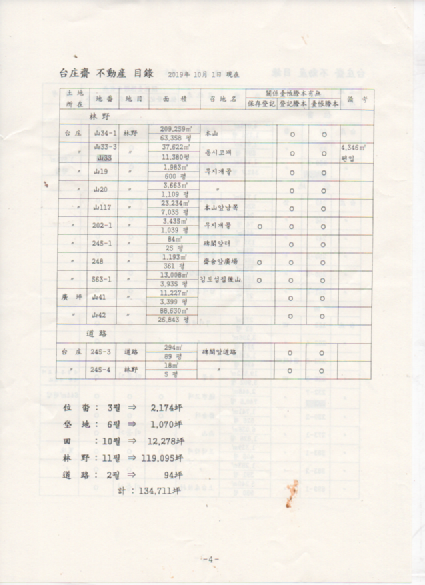 台庄齋 不動産 目錄 2019年 10月 1日 現在
土地所在 地番 地目 面積 在地名 關係臺帳謄本有無 備考
保存登記 登記謄本 臺帳謄本
林野
台庄 山34-1 林野 209,259㎡ 本山 ○ ○
63,358 평
〃 山33-3 〃 37,622㎡ ○ ○ 4,546㎡
山33 11,380평 편입
〃 山19 〃 1,983㎡ ○ ○
600 평
〃 山20 〃 3,663㎡ 〃 ○ ○
1,109 평
〃 山117 〃 23,234㎡ ○ ○
7,035 평
〃 202-1 〃 3,435㎡ ○ ○ ○
1,039 평
〃 245-1 〃 84㎡ ○ ○
25 평
〃 248 〃 1,193㎡ 齋舍앞廣場 ○ ○ ○
361 평
〃 553-1 〃 13,008㎡ ○ ○ ○
3,935 평
廣坪 山41 〃 11,227㎡ ○ ○
3,399 평
〃 山42 〃 88,530㎡ ○ ○
26,843 평
道路
台庄 245-3 道路 294㎡ 碑閣앞道路 ○ ○
89 평
〃 245-4 林野 18㎡ ○ ○
5 평
位畓 : 3필 ⇒ 2,174坪
垈地 : 6필 ⇒ 1,070坪
田 : 10필 ⇒ 12,278坪
林野 : 11필 ⇒ 119,095坪
道路 : 2필 ⇒ 94坪
計 : 134,711坪
-4-